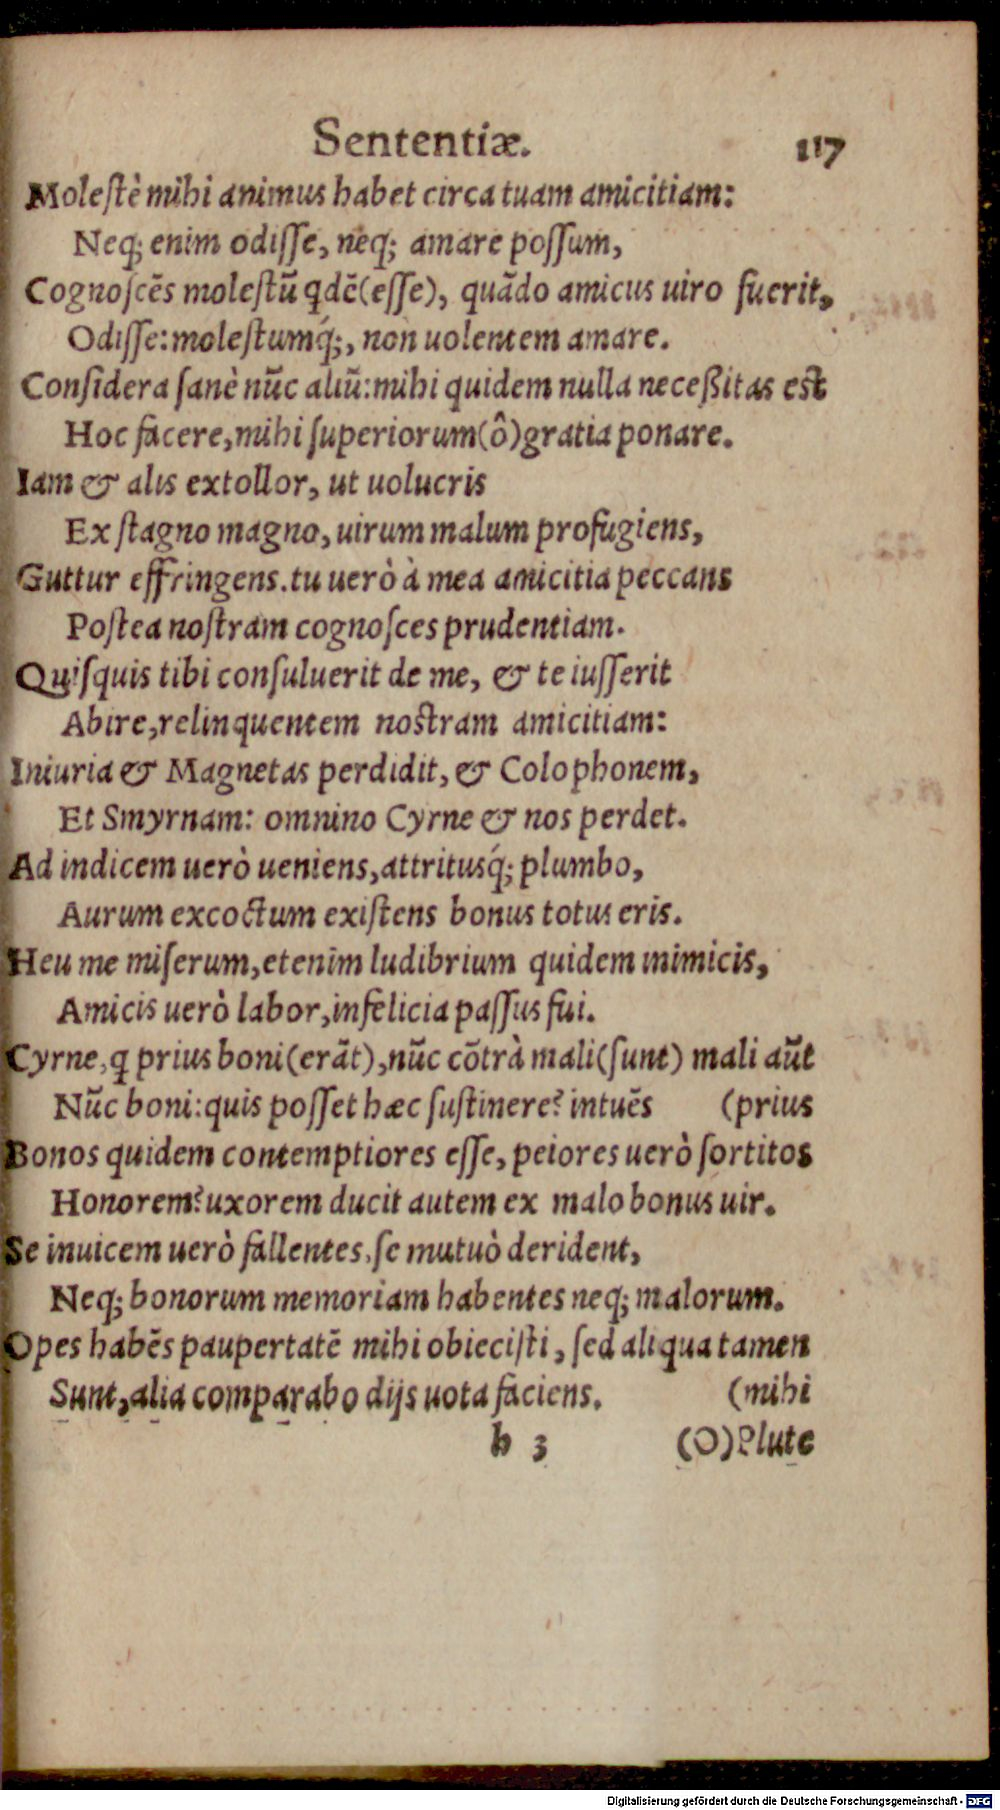 Sententiæ. 117
Molestè mihi animus habet circa tuam amicitiam:
Neq; enim odisse, neq; amare possum,
Cognoscẽs molestũ qdẽ(esse), quãdo amicus uiro fuerit,
Odisse: molestumq́;, non uolentem amare.
Considera sanè nũc aliũ: mihi quidem nulla necessitas est
Hoc facere, mihi superiorum(ô)gratia ponare.
Iam & alis extollor, ut uolucris
Ex stagno magno, uirum malum profugiens,
Guttur effringens. tu uerò à mea amicitia peccans
Postea nostram cognosces prudentiam.
Quisquis tibi consuluerit de me, & te iusserit
Abire, relinquentem nostram amicitiam:
Iniuria & Magnetas perdidit, & Colophonem,
Et Smyrnam: omnino Cyrne & nos perdet.
Ad indicem uerò ueniens, attritusq́; plumbo,
Aurum excoctum existens bonus totus eris.
Heu me miserum, etenim ludibrium quidem inimicis,
Amicis uerò labor, infelicia passus fui.
Cyrne, q prius boni(erãt), nũc cõtrà mali(sunt) mali aũt
Nũc boni: quis posset hæc sustinere? intuẽs (prius
Bonos quidem contemptiores esse, peiores uerò sortitos
Honorem? uxorem ducit autem ex malo bonus uir.
Se inuicem uerò fallentes, se mutuò derident,
Neq; bonorum memoriam habentes neq; malorum.
Opes habẽs paupertatẽ mihi obiecisti, sed aliqua tamen
Sunt, alia comparabo dijs uota faciens. (mihi
h 3 (O)Plute
Digitalisierung gefördert durch die Deutsche Forschungsgemeinschaft - DFG